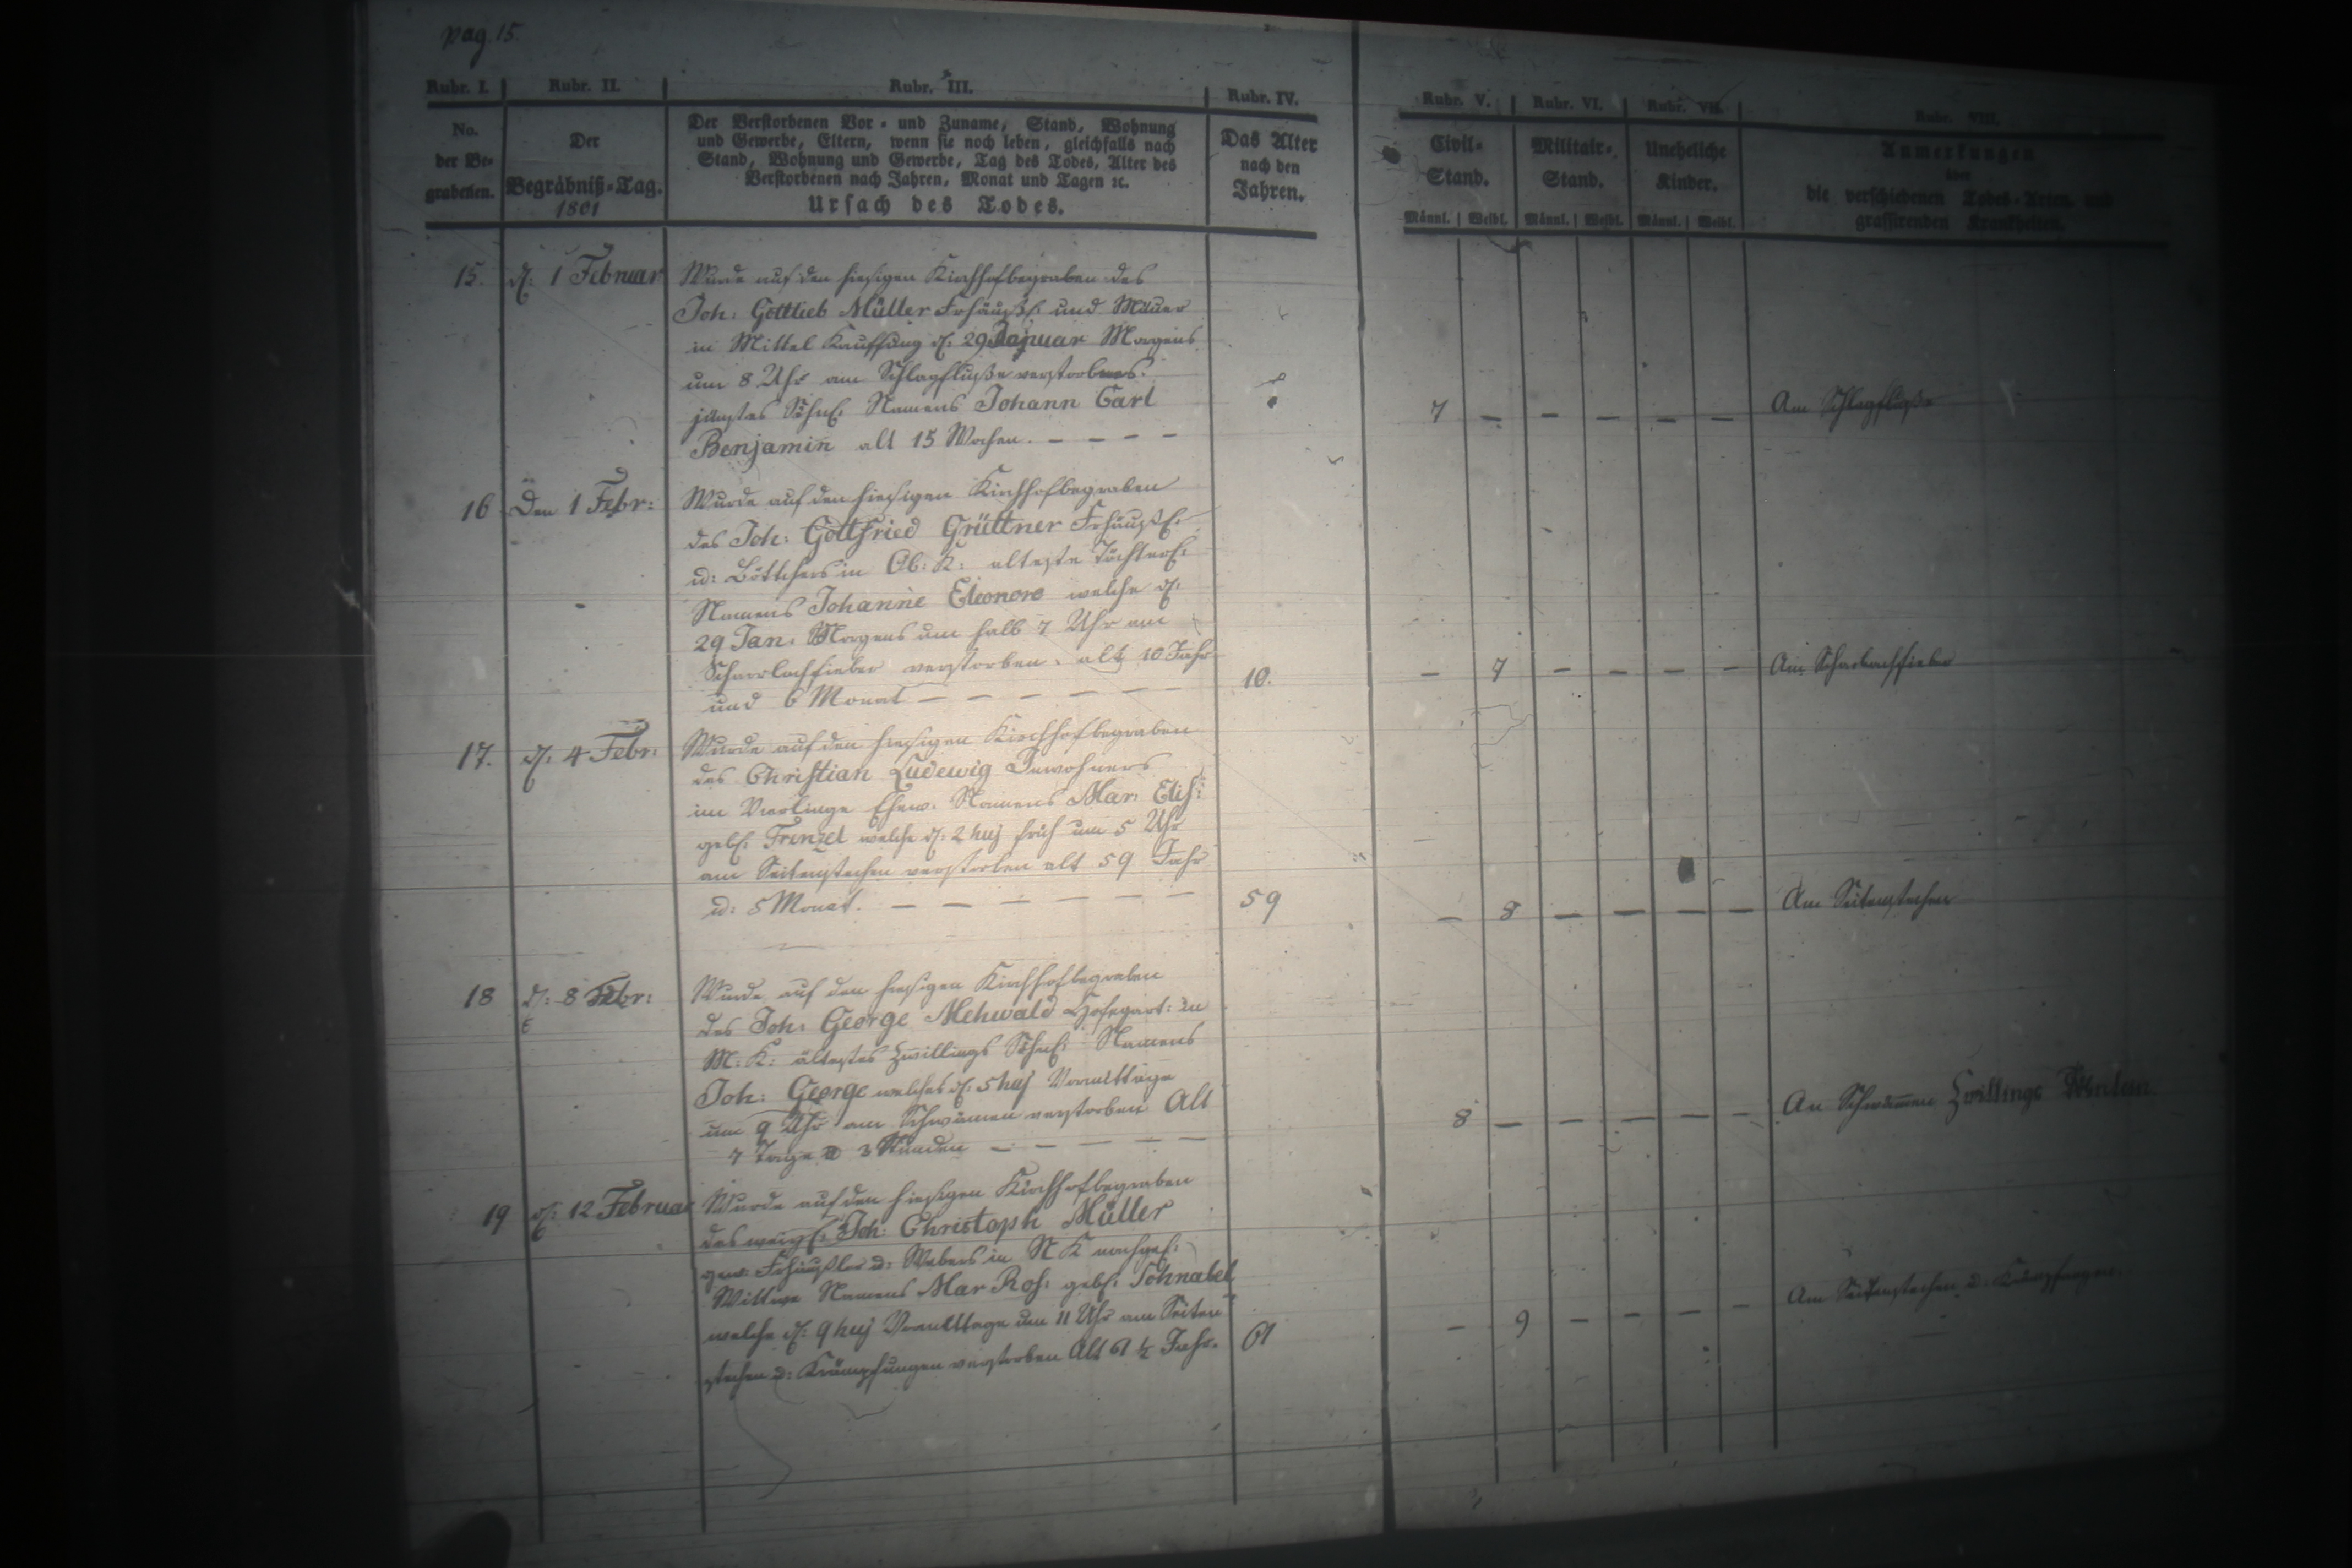 pag. 15
Rubr. I. Rubr. II. Rubr. III. Rubr. IV. Rubr. V. Rubr. VI. Rubr. VII. Rubr. VIII.
No.
der Be-
grabenen.
Der
Begräbniß-Tag.
1801
Der Verstorbenen Vor- und Zuname, Stand, Wohnung
und Gewerbe, Eltern, wenn sie noch leben, gleichfalls nach
Stand, Wohnung und Gewerbe, Tag des Todes, Alter des
Verstorbenen nach Jahren, Monat und Tagen ꝛc.
Ursach des Todes.
Das Alter
nach den
Jahren.
Civil-
Stand.
Männl. Weibl.
Militair-
Stand.
Männl. Weibl.
Uneheliche
Kinder.
Männl. Weibl.
Anmerkungen
über
die verschiedenen Todes-Arten und
grassirenden Krankheiten.
15. d: 1 Februar
Wurde auf den hiesigen Kirchhof begraben des
Joh: Gottlieb Müller Frhäusl: und Mäuer
in Mittel Kauffung d: 29 Januar Morgens
um 8 Uhr am Schlagfluße verstorbnes
jüngstes Söhnl: Namens Johann Carl
Benjamin alt 15 Wochen. – – – –
7 – – – – – Am Schlagfluße
16 Den 1 Febr:
Wurde auf den hiesigen Kirchhof begraben
des Joh: Gottfried Grüttner Frhäusl:
u: Böttchers in Ob: K: alteste Töchterl:
Namens Johanne Eleonore welche d:
29 Jan: Morgens um halb 7 Uhr am
Scharlachfieber verstorben. alt 10 Jahr
und 6 Monat – – – – – –
10. – 7 – – – – Am Scharlachfieber
17. d: 4 Febr:
Wurde auf den hiesigen Kirchhof begraben
des Christian Ludewig Inwohners
im Vorlinge Ehew. Namens Mar: Elis:
gebl: Frenzel welche d: 2 huj früh um 5 Uhr
am Seitenstechen verstorben alt 59 Jahr
u: 5 Monat. – – – – – –
59 – 8 – – – – Am Seitenstechen
18 d: 8 Febr:
Wurde auf den hiesigen Kirchhof begraben
des Joh: George Mehwald Hofegärt: in
M: K: ältestes Zwillings Söhnl: Namens
Joh: George welches d: 5 huj Vormittage
um 9 Uhr am Schwämen verstorben Alt
7 Tage u 3 Stunden – – – – –
8 – – – – – An Schwämmen Zwillings
19 d: 12 Februar
Wurde auf den hiesigen Kirchhof begraben
des weyl: Joh: Christoph Müller
gew: Frhäusler u: Webers in N K nachgel:
Wittwe Namens Mar Ros: gebl: Schnabel
welche d: 9 huj Vormittage um 11 Uhr am Seiten
stechen u: Krämpfungen verstorben Alt 61 ½ Jahr.
61 – 9 – – – – Am Seitenstechen u: